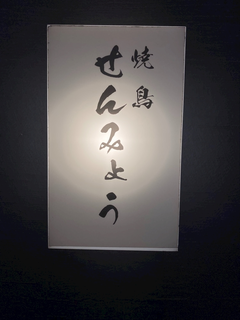 焼鳥
せんみょう